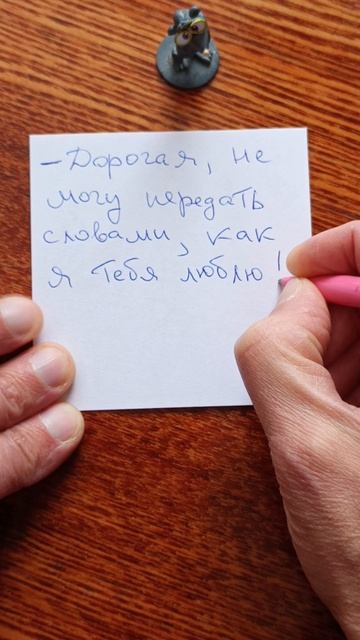 - Дорогая, не
могу передать
словами, как
я тебя люблю!